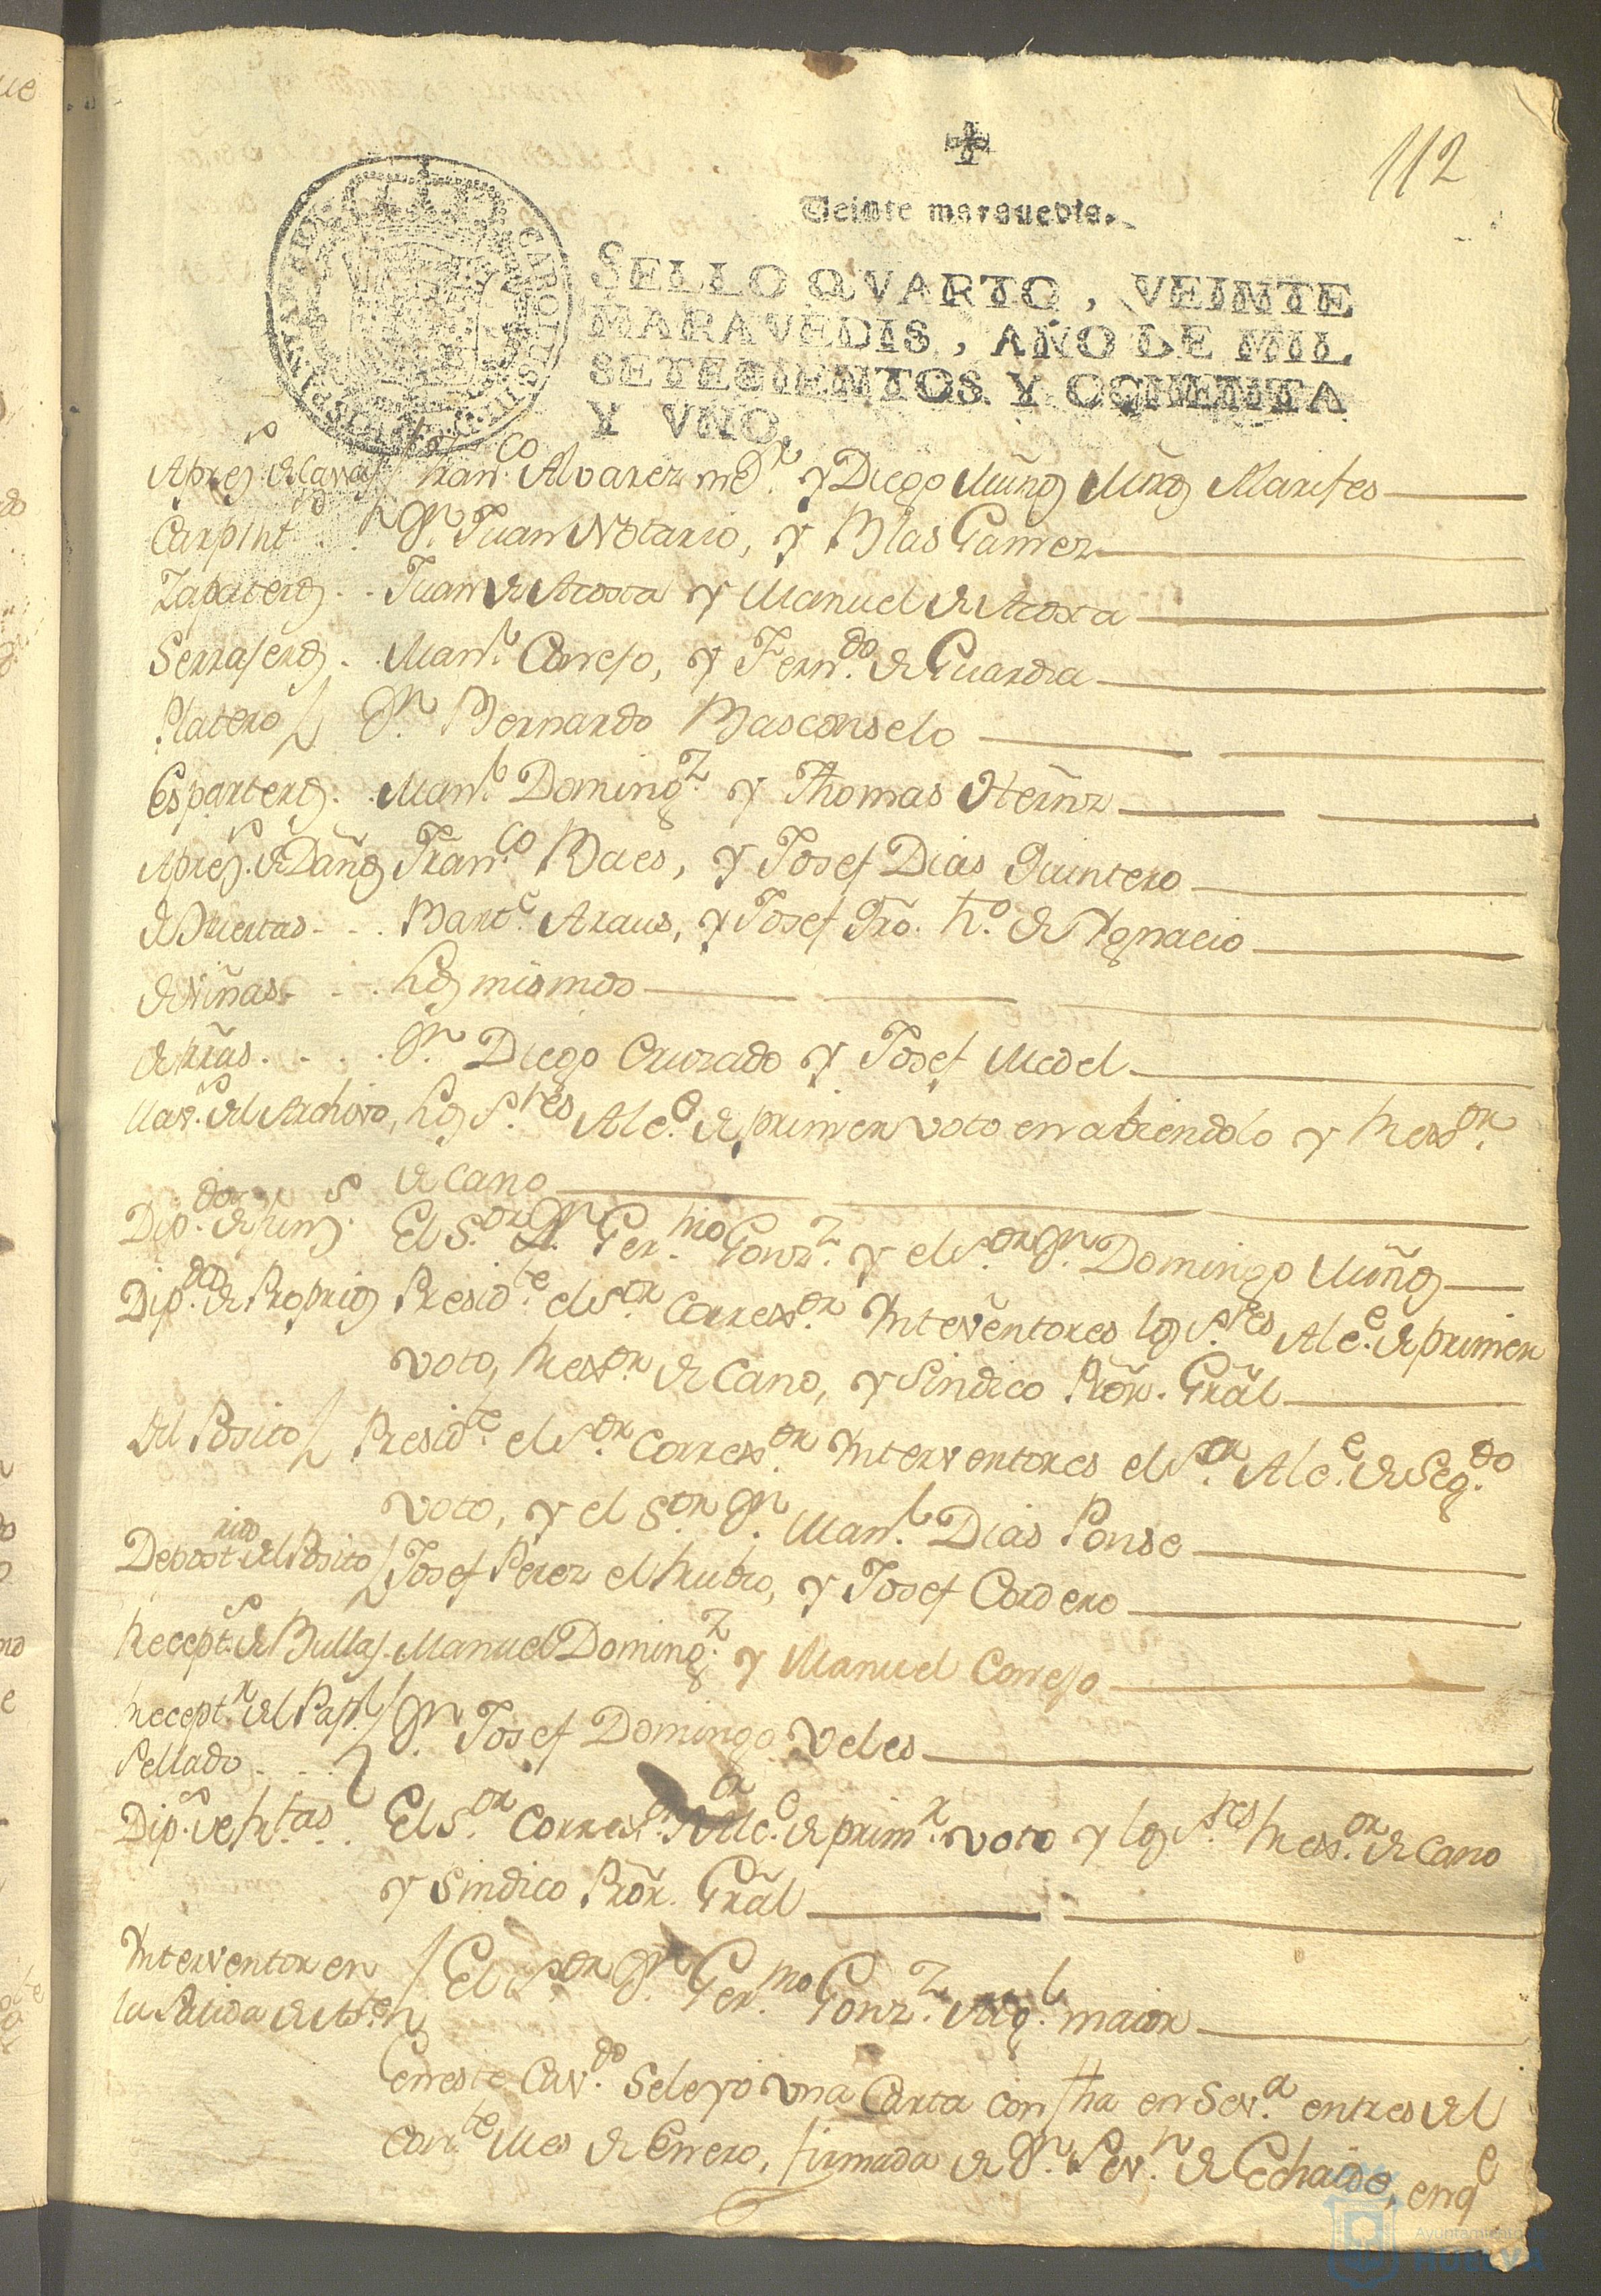 112
Veinte maravedis.
SELLO QVARTO, VEINTE
MARAVEDIS, AÑO DE MIL
SETECIENTOS Y OCHENTA
Y VNO.
Apres.s de Casas Fran.co Alvarez me.r y Diego Muñoz Muñoz Marifes
Carpint.s D.n Juan Notario, y Blas Gamez
Zapateros. . Juan de Acosta y Manuel de Acosta
Serrajeros. . Man.l Cornejo, y Fern.do de Guardia
Platero D.n Bernardo Basconselo
Esparteros. . Man.l Doming.z y Thomas Hernz
Apres.s de Daños Fran.co Baes, y Josef Dias Quintero
de Huertas. . . Bart.e Araus, y Josef Fro. h.o de Ygnacio
de Viñas. . . los mismos
de hras. . . . D.n Diego Cruzado y Josef Medel
llav.s del Archivo, los S.res Alc.e de primer voto en abiendolo y Rex.or
decano
Dip.dos de El S.or D.n Ger.mo Gonz.z y el S.or D.n Domingo Muñoz
Dip.dos de Proprios Presid.te el S.or Correx.or Interventores los S.res Alc.e de primer
voto, Rex.or decano, y Sindico Prõr. Grãl
del Posito Presid.te el S.or Correx.or Interventores el S.or Alc.e de Seg.do
voto, y el S.or D.n Man.l Dias Ponse
Depost.rios del Posito Josef Perez el Rubio, y Josef Cordero
Recept.s de Bullas. Manuel Doming.z y Manuel Cornejo
Recept.r del Pap.l D.n Josef Domingo Veles
Sellado. . .
Dip.s de El S.or Correx.or Alc.e de prim.r voto y los S.res Rex.or decano
y Sindico Prõr. Grãl
Interventor en El S.or D.n Ger.mo Gonz.z Alg.l maior
la Salida de
En este Cav.do Se leyo vna Carta con fha en Sev.a en tres del
corr.te Mes de Enero, firmada de D.n de Echaide, en q.e
Ayuntamiento de
HUELVA